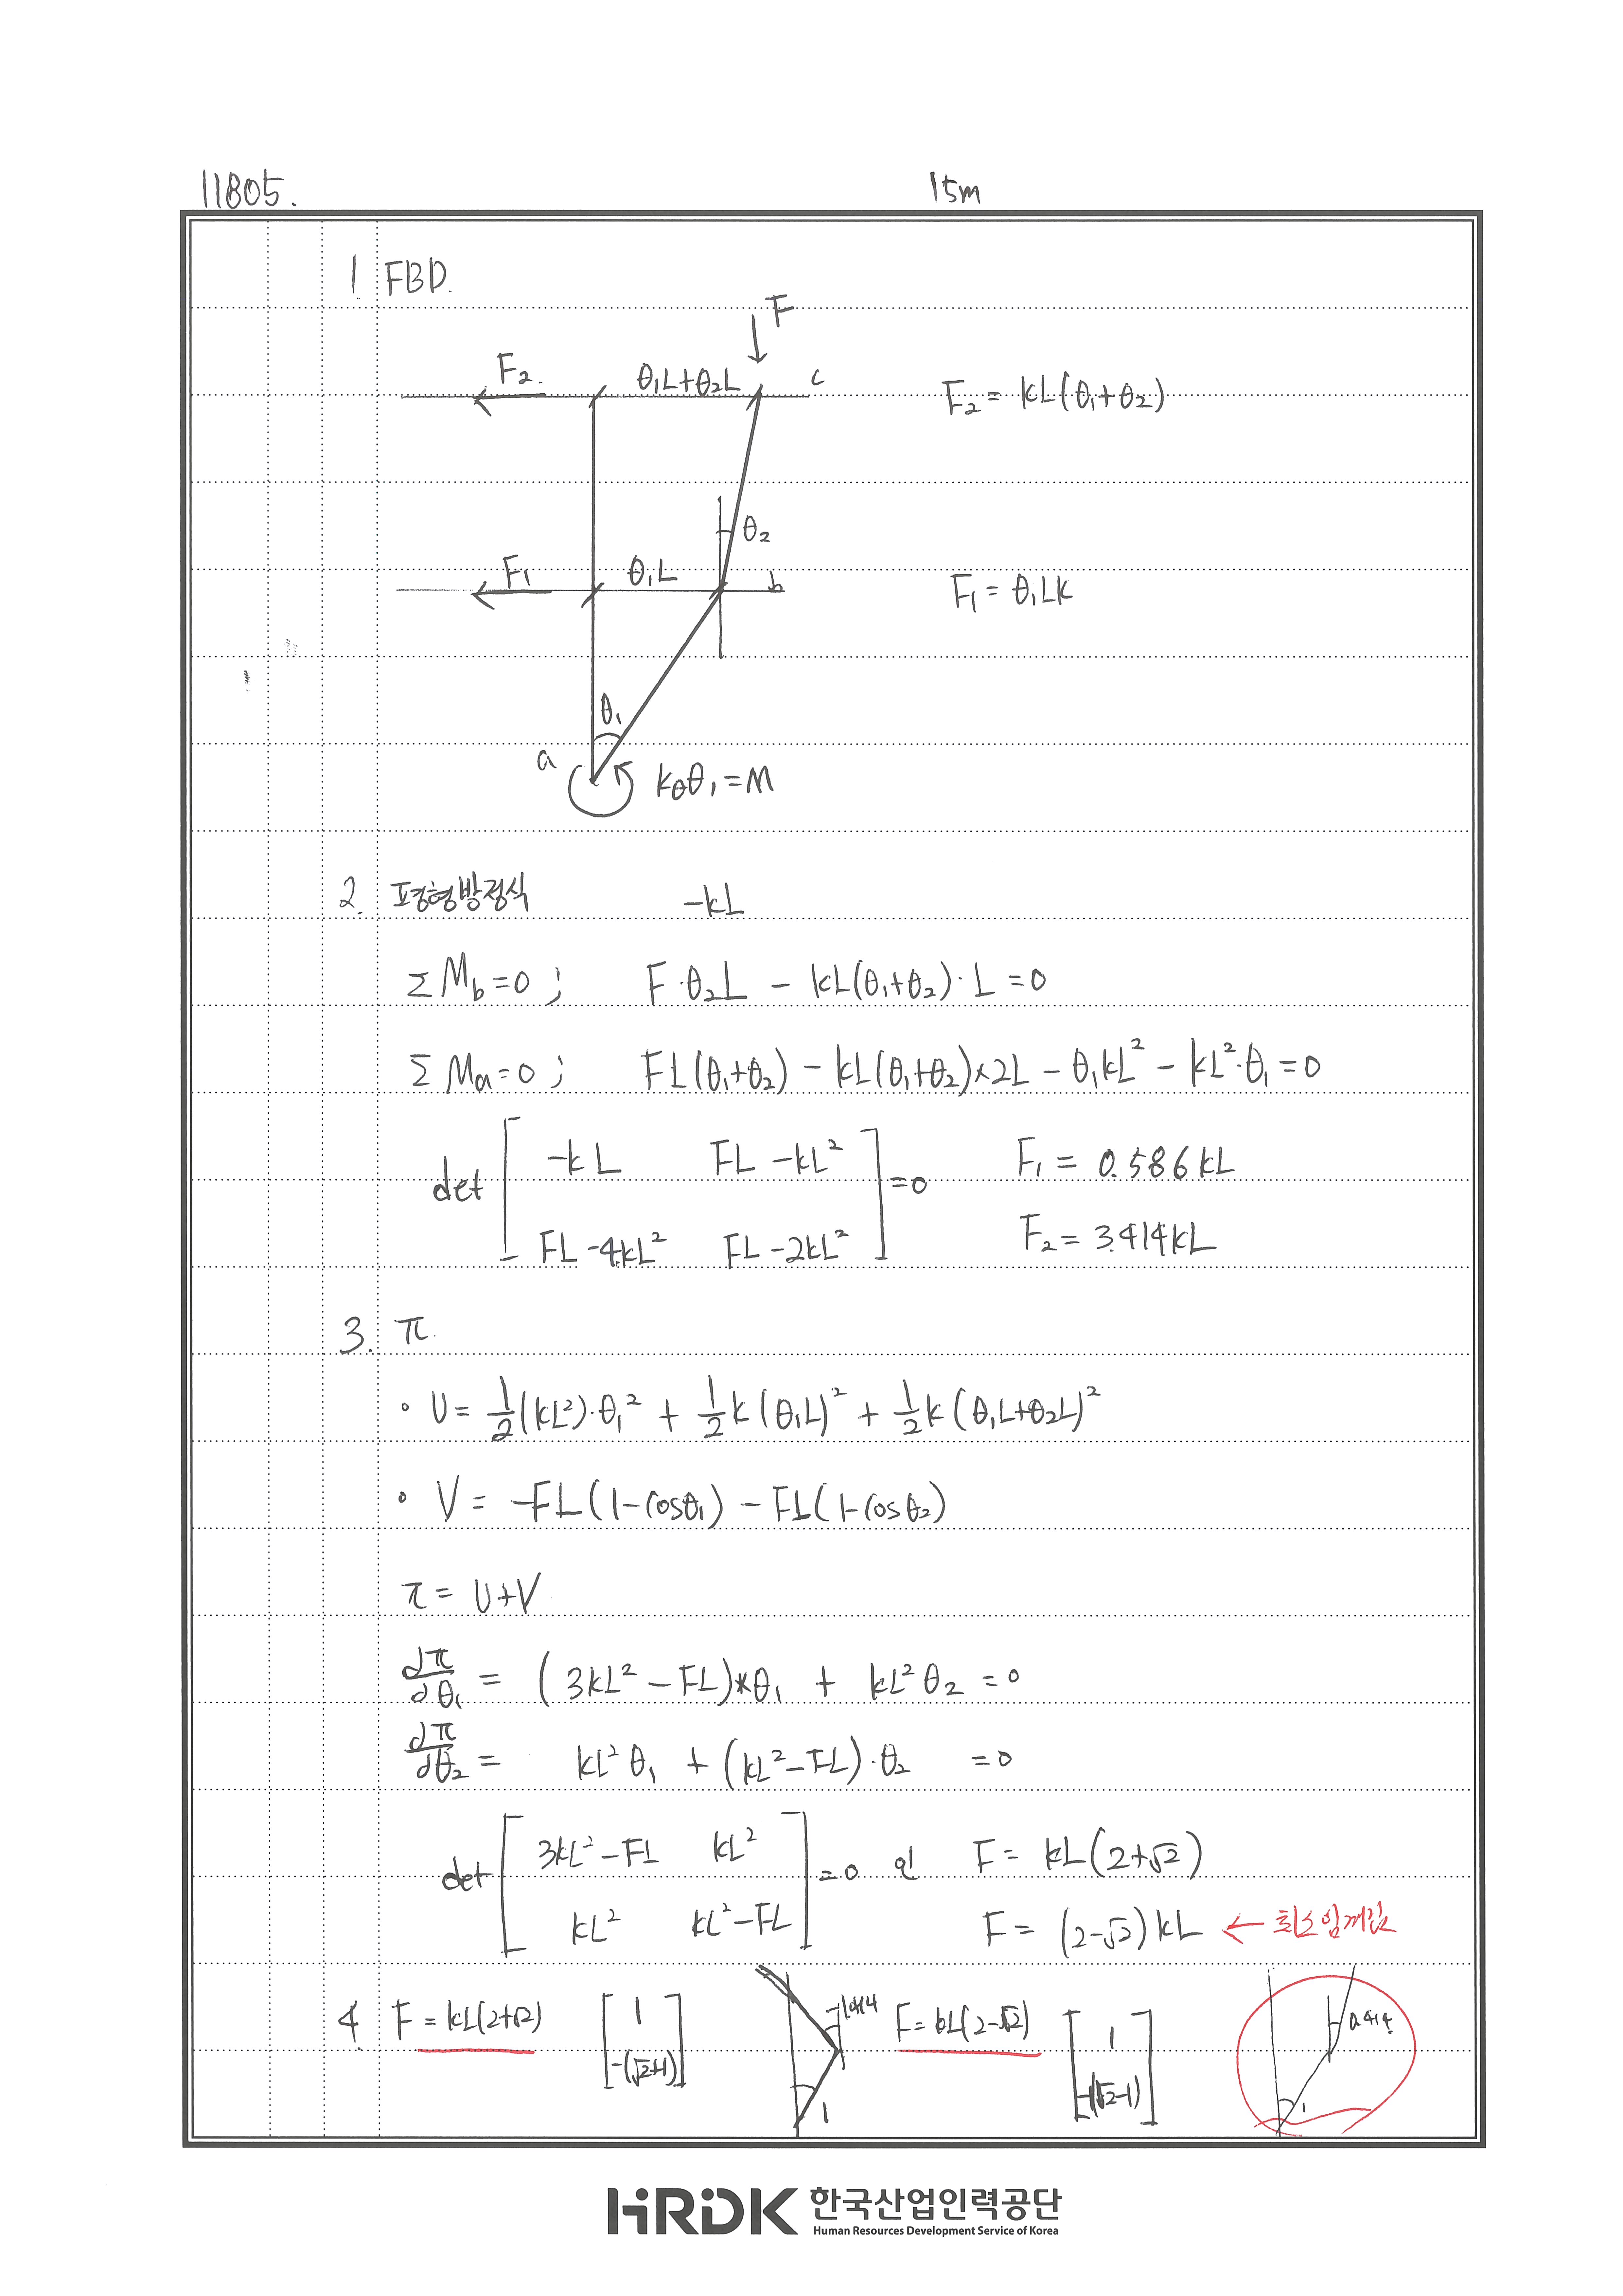 11805.
15m
1 FBD.
F
F₂
θ₁L+θ₂L
c
F₂ = kL(θ₁+θ₂)
θ₂
F₁
θ₁L
b
F₁ = θ₁Lk
θ₁
a
kθθ₁ = M
2. 평형방정식
-kL
ΣM_b=0 ; F·θ₂L - kL(θ₁+θ₂)·L = 0
ΣMa=0 ; FL(θ₁+θ₂) - kL(θ₁+θ₂)×2L - θ₁kL² - kL²·θ₁ = 0
det [ -kL FL-kL² ] = 0 F₁ = 0.586kL
[ FL-4kL² FL-2kL² ] F₂ = 3.414kL
3. π.
• U = 1/2(kL²)·θ₁² + 1/2k(θ₁L)² + 1/2k(θ₁L+θ₂L)²
• V = -FL(1-cosθ₁) - FL(1-cosθ₂)
π = U+V
∂π/∂θ₁ = (3kL²-FL)*θ₁ + kL²θ₂ = 0
∂π/∂θ₂ = kL²θ₁ + (kL²-FL)·θ₂ = 0
det [ 3kL²-FL kL² ] = 0 인 F = kL(2+√2)
[ kL² kL²-FL ] F = (2-√2)kL ← 최소임계값
4 F = kL(2+√2) [ 1 -(√2+1) ] 1.414 1 F = kL(2-√2) [ 1 -(√2-1) ] 0.414 1
HRDK 한국산업인력공단
Human Resources Development Service of Korea